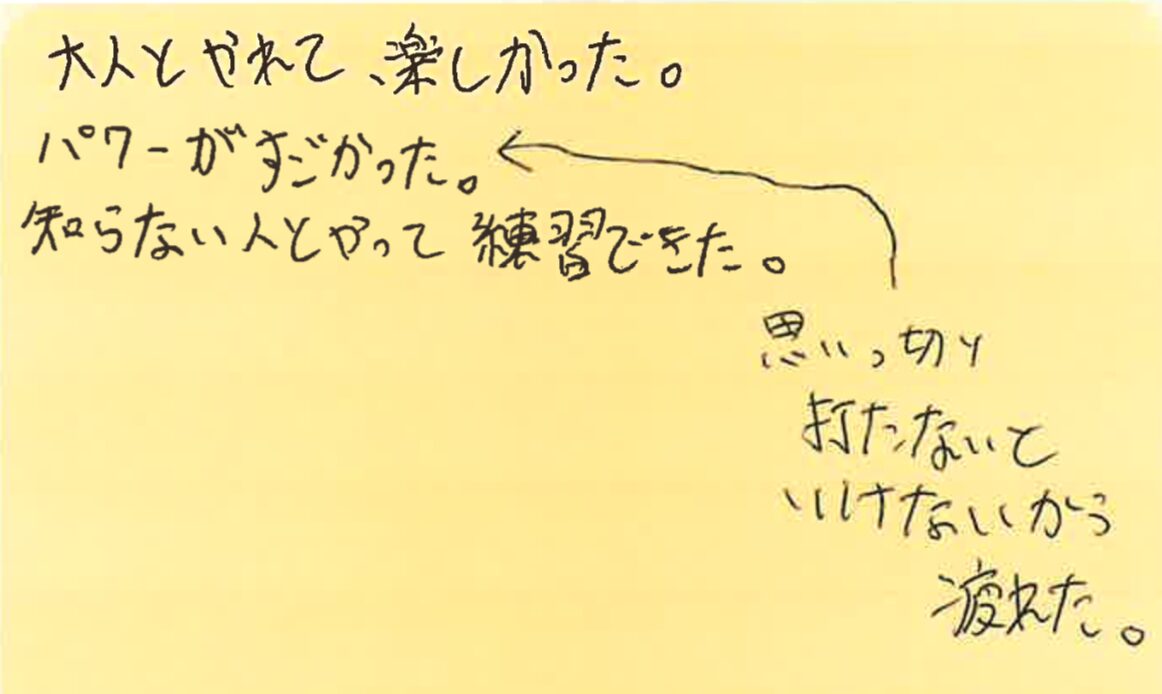 大人とやれて、楽しかった。
パワーがすごかった。
知らない人とやって練習できた。
思いっ切り
打たないと
いけないから
疲れた。